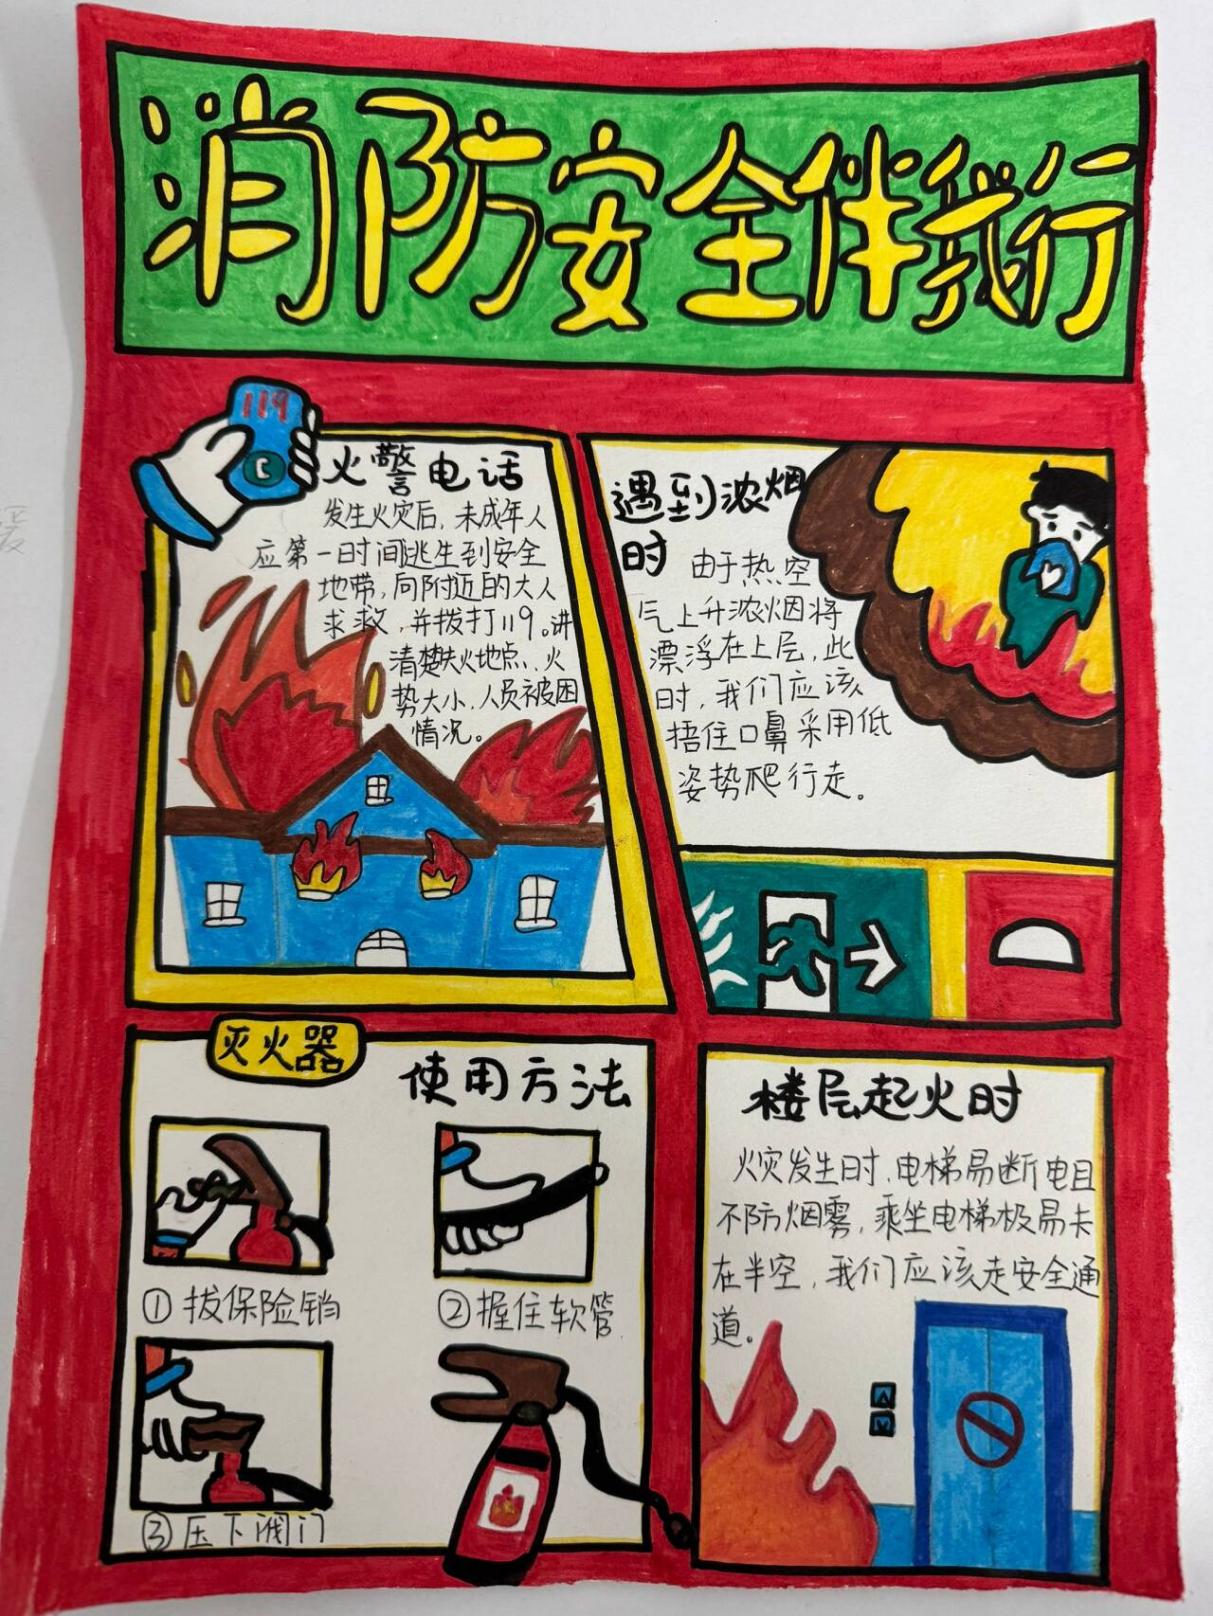 消防安全伴我行
119
火警电话
发生火灾后，未成年人
应第一时间逃生到安全
地带，向附近的大人
求救，并拨打119。讲
清楚失火地点、火
势大小、人员被困
情况。
遇到浓烟
时
由于热空
气上升浓烟将
漂浮在上层，此
时，我们应该
捂住口鼻采用低
姿势爬行走。
灭火器
使用方法
①拔保险销
②握住软管
③压下阀门
楼层起火时
火灾发生时，电梯易断电且
不防烟雾，乘坐电梯极易卡
在半空，我们应该走安全通
道。